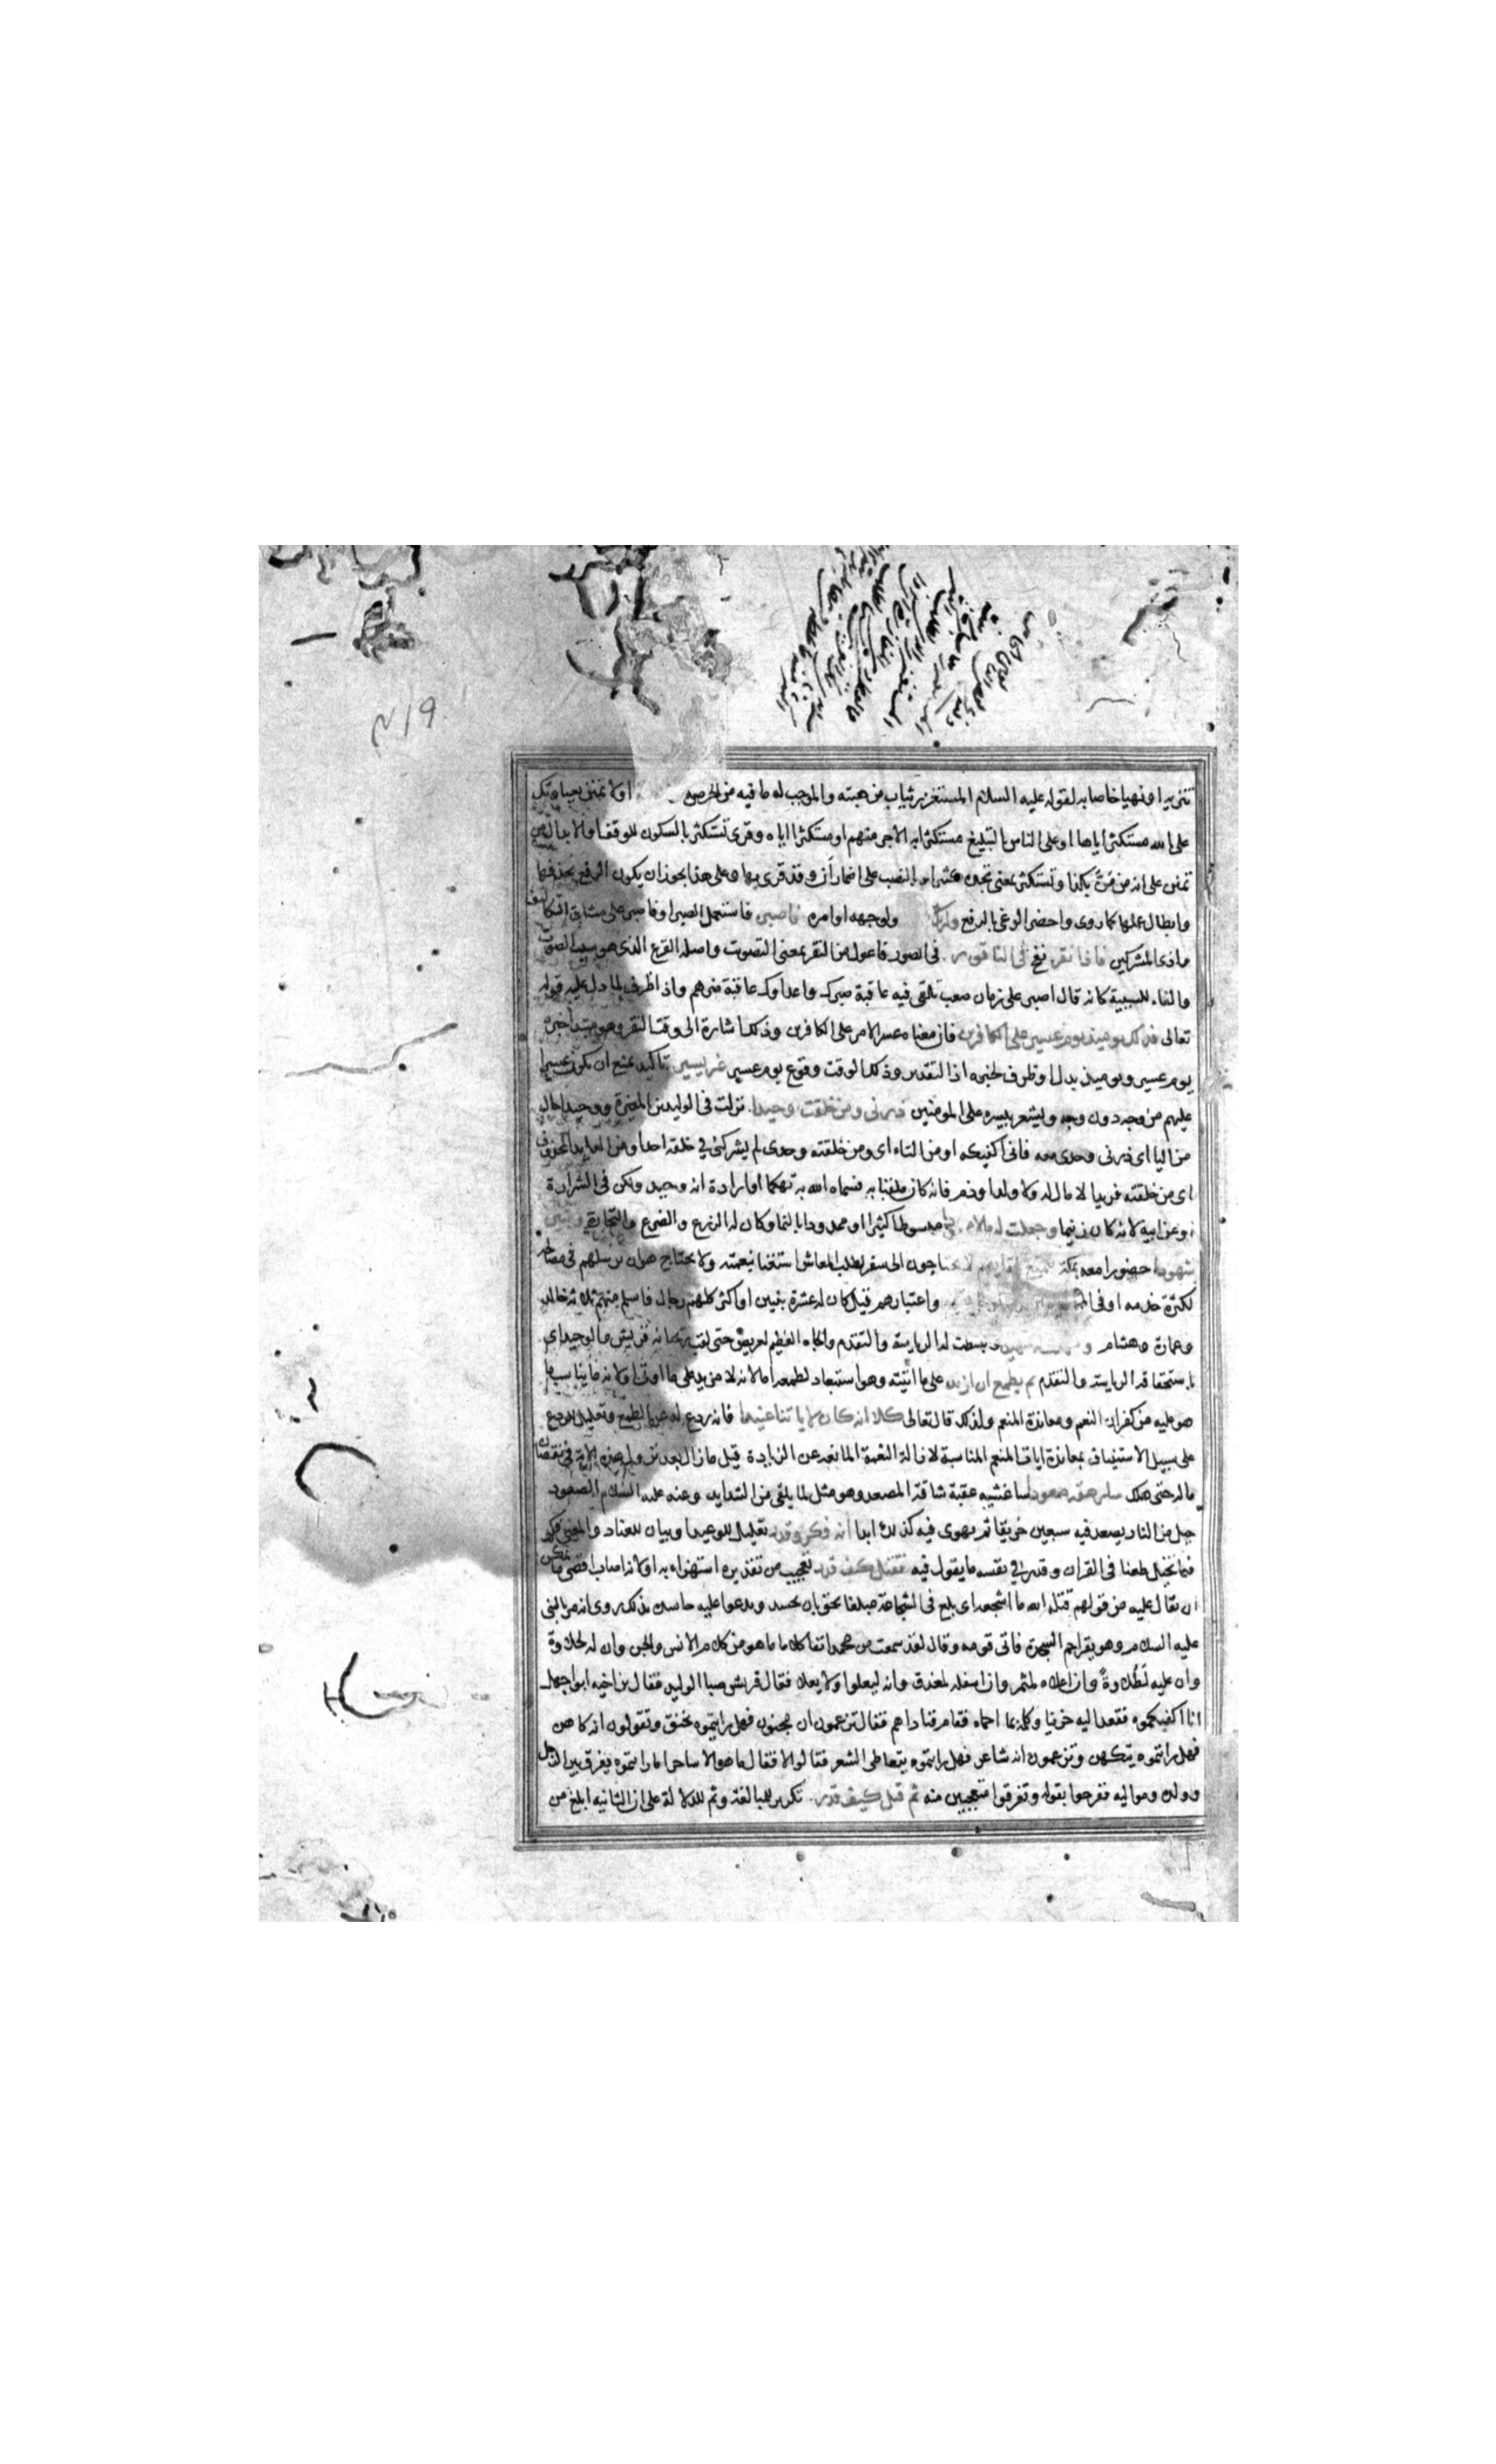 تنزيه او نهيا خاصا به لقوله عليه السلام المستغزر يثاب من هبته والموجب له ما فيه من الحرص او لا تمنن بعبادتك
على الله مستكثرا اياها او على الناس بالتبليغ مستكثرا به الاجر منهم او مستكثرا اياه وقرى تستكثر بالسكون للوقف او الابدال من
تمنن على انه من مَنّ بكذا وتستكثر بمعنى تجده كثيرا وبالنصب على اضمار أن وقد قرى بها وعلى هذا يجوز ان يكون الرفع بحذفها
وابطال عملها كما روى واحضر الوغى بالرفع ولربك ولوجهه او امره فاصبر فاستعمل الصبر او فاصبر على مشاق التكاليف
واذى المشركين فاذا نقر نفخ في الناقور في الصور فاعول من النقر بمعنى التصويت واصله القرع الذى هو سبب الصوت
والفاء للسببية كانه قال اصبر على زمان صعب تلقى فيه عاقبة صبرك واعداوك عاقبة ضرهم واذا ظرف لما دل عليه قوله
تعالى فذلك يوميذ يوم عسير على الكافرين فان معناه عسر الامر على الكافرين وذلك اشارة الى وقت النقر وهو مبتدا خبره
يوم عسير ويوميذ بدل او ظرف لخبره اذ التقدير وذلك الوقت وقوع يوم عسير غير يسير تاكيد يمنع ان يكون عسيرا
عليهم من وجه دون وجه ويشعر بيسره على المومنين ذرنى ومن خلقت وحيدا نزلت في الوليد بن المغيرة ووحيدا حال
من اليا اى ذرنى وحدى معه فانى اكفيكه او من التاء اى ومن خلقته وحدى لم يشركنى في خلقه احد او من العايد المحذوف
اى من خلقته فريدا لا مال له ولا ولد او ذم فانه كان ملقبا به فسماه الله به تهكما او ارادة انه وحيد ولكن في الشرارة
او عن ابيه لانه كان زنيما وجعلت له مالا مبسوطا كثيرا او ممدودا بالنما وكان له الزرع والضرع والتجارة وبنين
شهودا حضورا معه بمكة يتمتع بلقايهم لا يحتاجون الى سفر لطلب المعاش استغنا بنعمته ولا يحتاج هو ان يرسلهم في مصالحه
لكثرة خدمه او في واعتبارهم قيل كان له عشرة بنين او اكثر كلهم رجال فاسلم منهم ثلاثة خالد
وعمارة وهشام وبسطت له الرياسة والتقدم والجاه العظيم العريض حتى لقب ريحانة قريش والوحيد اى
باستحقاقه الرياسة والتقدم ثم يطمع ان ازيد على ما اتيته وهو استبعاد لطمعه اما لانه لا مزيد على ما اوتى او لانه لا يناسب ما
هو عليه من كفران النعم ومعاندة المنعم ولذلك قال تعالى كلا انه كان لاياتنا عنيدا فانه ردع له عن الطمع وتعليل للردع
على سبيل الاستيناف بمعاندة ايات المنعم المناسبة لازالة النعمة المانعة عن الزيادة قيل ما زال بعد نزول هذه الاية في نقصان
ماله حتى هلك سارهقه صعودا ساغشيه عقبة شاقة المصعد وهو مثل لما يلقى من الشدايد وعنه عليه السلام الصعود
جبل من النار يصعد فيه سبعين خريفا ثم يهوى فيه كذلك ابدا انه فكر وقدر تعليل للوعيد او بيان للعناد والمعنى فكر
فيما تخيل طعنا في القران وقدر في نفسه ما يقول فيه فقتل كيف قدر تعجيب من تقديره استهزاء به او لانه اصاب اقصى ما يمكن
ان يقال عليه من قولهم قتله الله ما اشجعه اى بلغ في الشجاعة مبلغا يحق بان يحسد ويدعوا عليه حاسده بذلك روى انه مر بالنبى
عليه السلام وهو يقرا حم السجدة فاتى قومه وقال لقد سمعت من محمد انفا كلاما ما هو من كلام الانس والجن وان له لحلاوة
وان عليه لَطُلاوةً وان اعلاه لمثمر وان اسفله لمغدق وانه ليعلوا ولا يعلى فقال قريش صبا الوليد فقال بن اخيه ابو جهل
انا اكفيكموه فقعد اليه حزينا وكلمه بما احماه فقام فناداهم فقال تزعمون ان محمدا مجنون فهل رايتموه يخنق وتقولون انه كاهن
فهل رايتموه يتكهن وتزعمون انه شاعر فهل رايتموه يتعاطى الشعر فقالوا لا فقال ما هو الا ساحر اما رايتموه يفرق بين الرجل
وولده ومواليه ففرحوا بقوله وتفرقوا متعجبين منه ثم قتل كيف قدر تكرير للمبالغة وثم للدلالة على ان الثانية ابلغ من